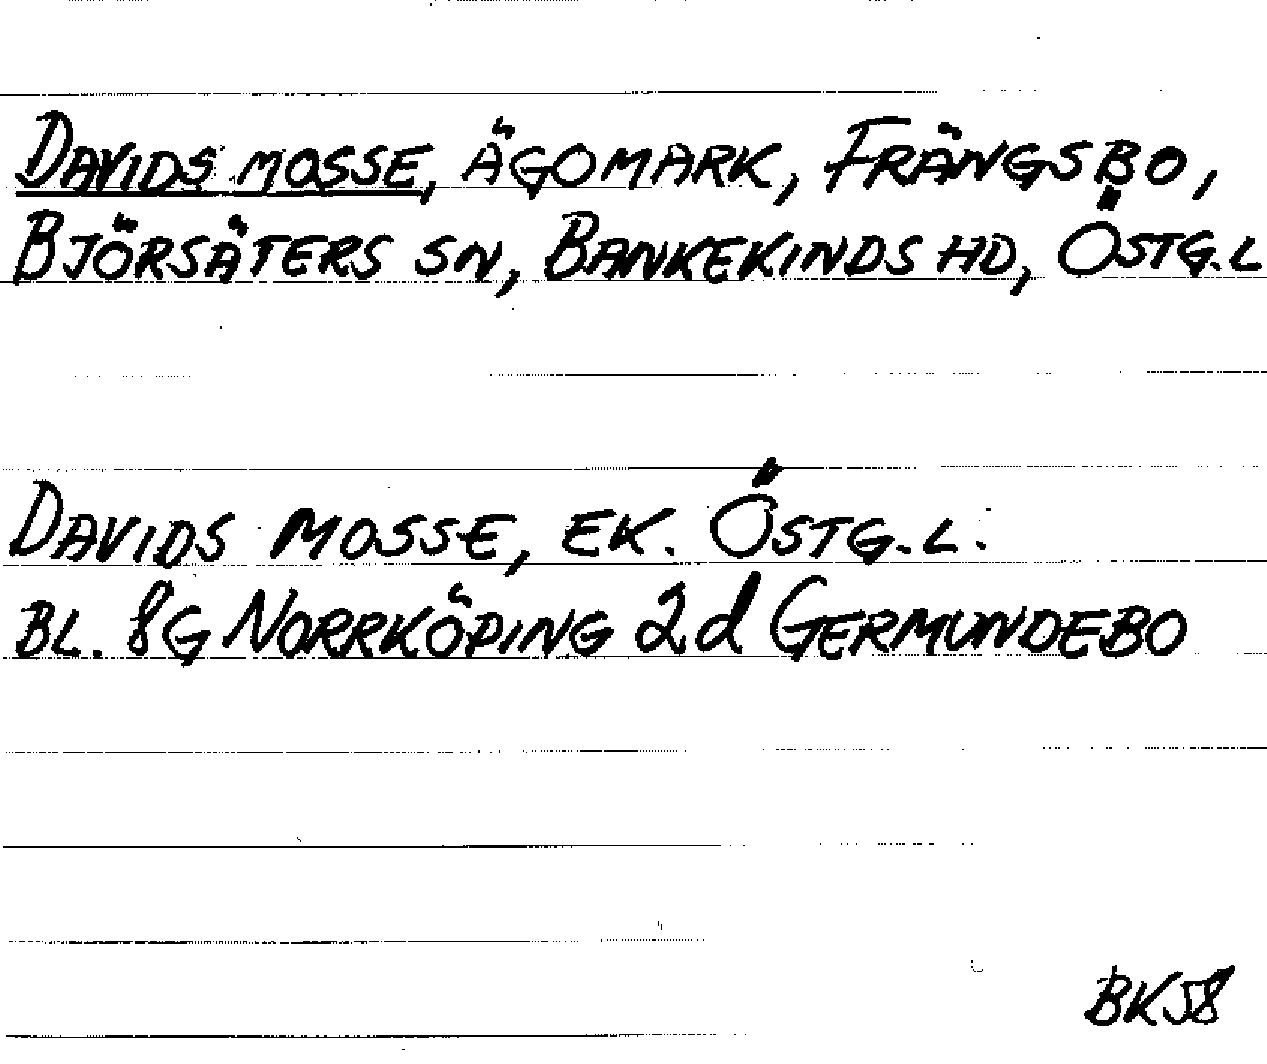 DAVIDS MOSSE, ÄGOMARK, FRÄNGSBO,
BJÖRSÄTERS SN, BANKEKINDS HD, ÖSTG.L
DAVIDS MOSSE, EK. ÖSTG.L.
BL. 8G NORRKÖPING 2d GERMUNDEBO
BK58